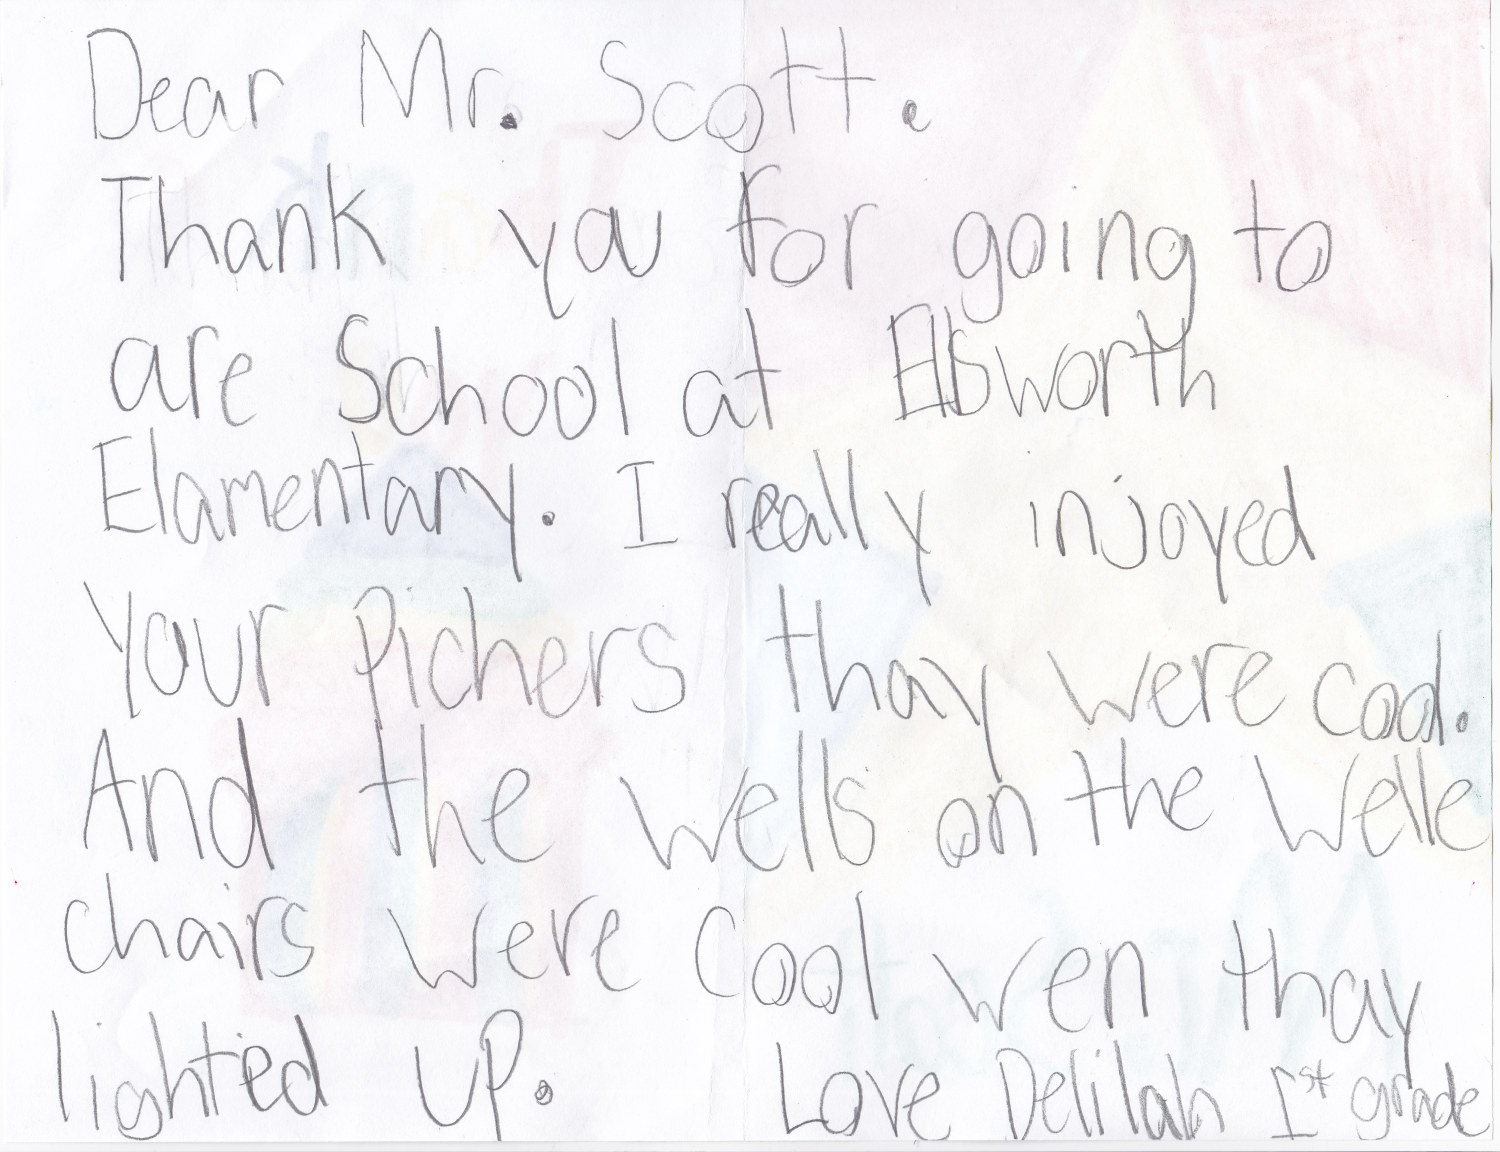 Dear Mr. Scott.
Thank you for going to
are School at Elsworth
Elamentary. I really injoyed
Your pichers thay were cool.
And the wells on the welle
chairs were cool wen thay
lighted up. Love Delilah 1st grade